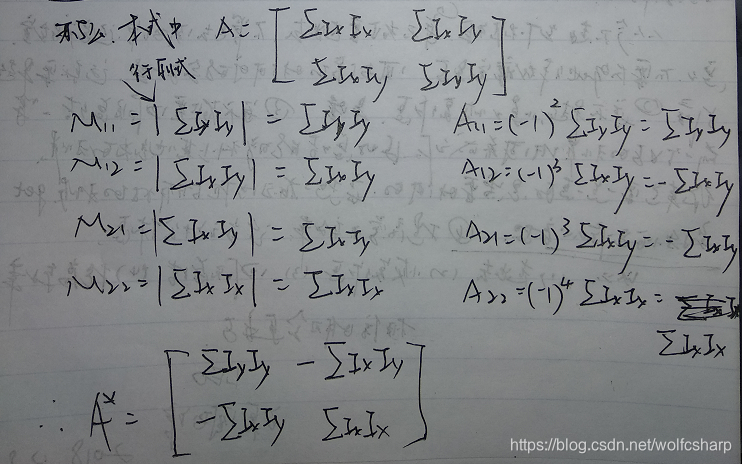 所以 本式中 A = [ ΣIxIx ΣIxIy
ΣIxIy ΣIyIy ]
行列式
M11 = | ΣIyIy | = ΣIyIy A11 = (-1)^2 ΣIyIy = ΣIyIy
M12 = | ΣIxIy | = ΣIxIy A12 = (-1)^3 ΣIxIy = - ΣIxIy
M21 = | ΣIxIy | = ΣIxIy A21 = (-1)^3 ΣIxIy = - ΣIxIy
M22 = | ΣIxIx | = ΣIxIx A22 = (-1)^4 ΣIxIx =
ΣIxIx
∴ A* = [ ΣIyIy - ΣIxIy
-ΣIxIy ΣIxIx ]
https://blog.csdn.net/wolfcsharp